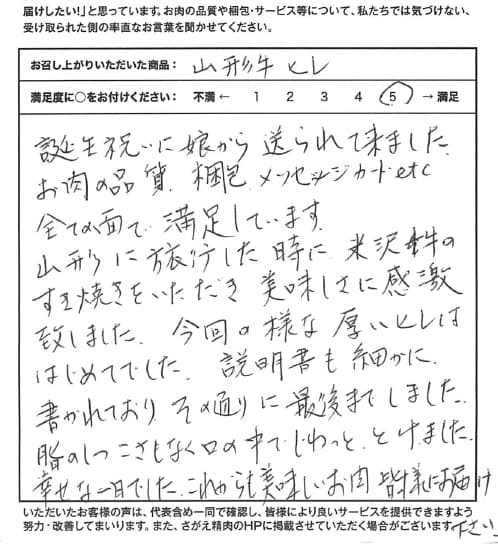 届けしたい!」と思っています。お肉の品質や梱包・サービス等について、私たちでは気づけない、
受け取られた側の率直なお言葉を聞かせてください。
お召し上がりいただいた商品： 山形牛ヒレ
満足度に○をお付けください： 不満 ← 1 2 3 4 5 → 満足
誕生祝いに娘から送られて来ました
お肉の品質、梱包 メッセージカードetc
全ての面で満足しています。
山形に旅行した時に米沢牛の
すき焼きをいただき美味しさに感激
致しました。今回の様な厚いヒレは
はじめてでした。説明書も細かに
書かれておりその通りに最後までしました。
脂のしつこさもなく口の中でじわっととけました。
幸せな一日でした。これからも美味しいお肉皆様にお届け
下さい。
いただいたお客様の声は、代表含め一同で確認し、皆様により良いサービスを提供できますよう
努力・改善してまいります。また、さがえ精肉のHPに掲載させていただく場合がございます。